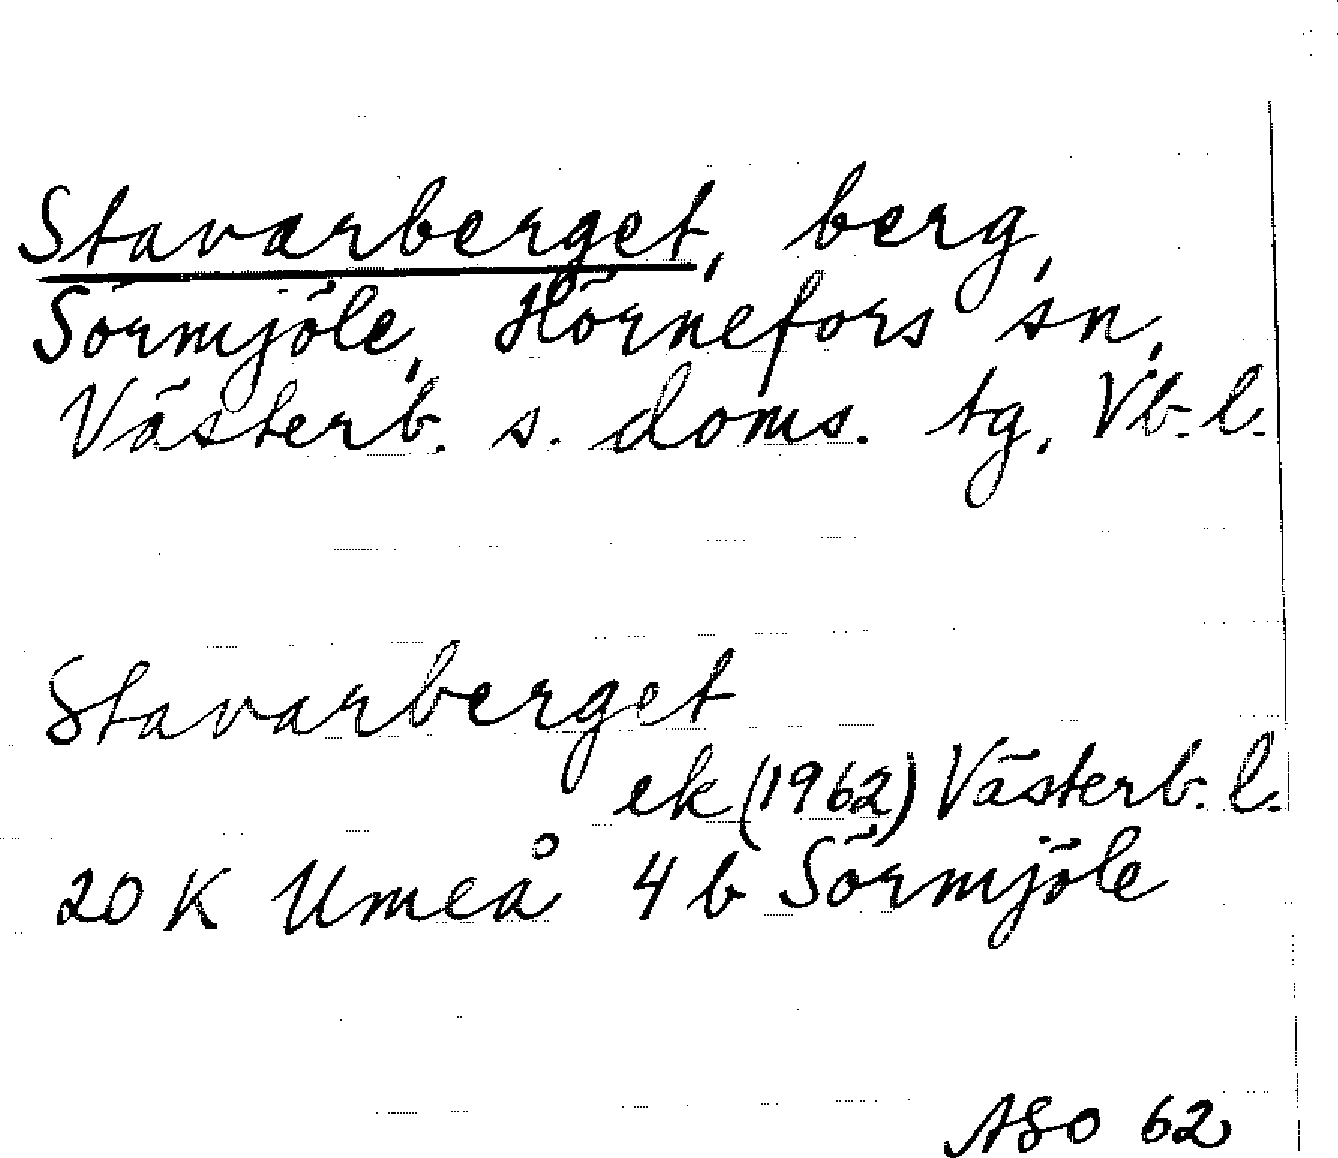 Stavarberget, berg,
Sörmjöle, Hörnefors sn,
Västerb. s. doms. tg, Vb. l.
Stavarberget
ek (1962) Västerb. l.
20 K Umeå 4 b Sörmjöle
ASO 62